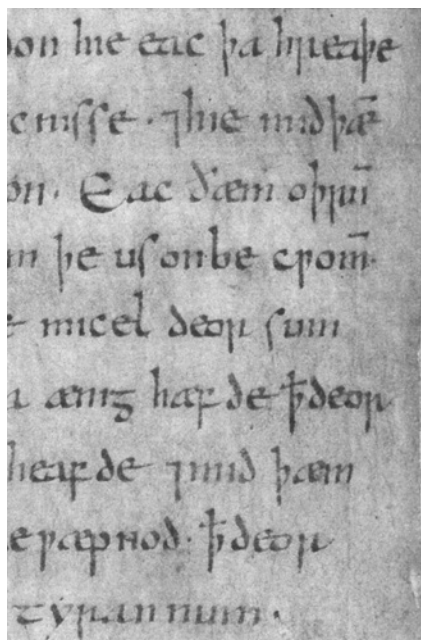 don hie eac þa hreaþe
cnisse · ⁊hie mid þæ̅
on · Eac ðæm oþrū
m þe us onbe cƿom̅ ·
e micel deor sum
a ænig hæf de ꝥdeor
heaf de ⁊mid þæm
eƿæpnod · ꝥdeor
tyrannum ·